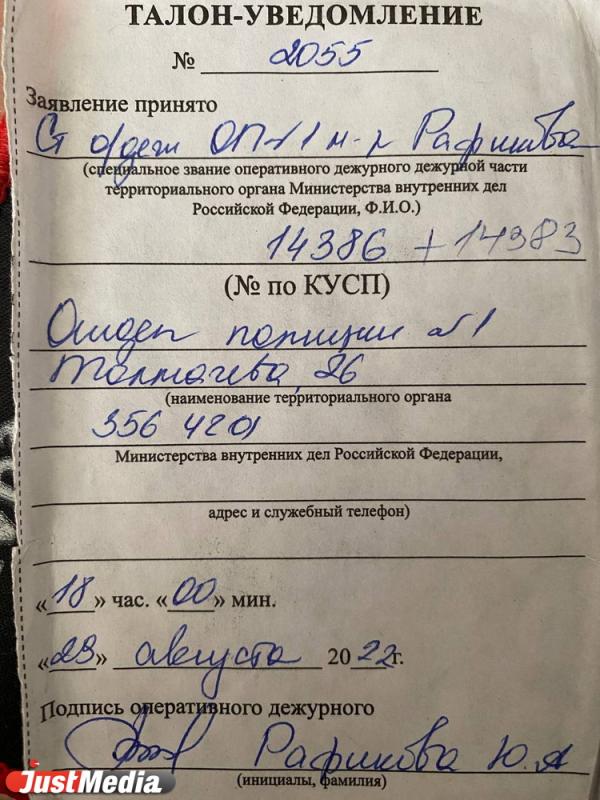 ТАЛОН-УВЕДОМЛЕНИЕ
№ 2055
Заявление принято
Ст о/деж ОП №1 м-р Рафикова
(специальное звание оперативного дежурного дежурной части
территориального органа Министерства внутренних дел
Российской Федерации, Ф.И.О.)
14386 + 14383
(№ по КУСП)
Отдел полиции №1
Толмачева, 26
(наименование территориального органа
356 4201
Министерства внутренних дел Российской Федерации,
адрес и служебный телефон)
«18» час. «00» мин.
«29» августа 2022г.
Подпись оперативного дежурного
Рафикова Ю.А
(инициалы, фамилия)
JustMedia